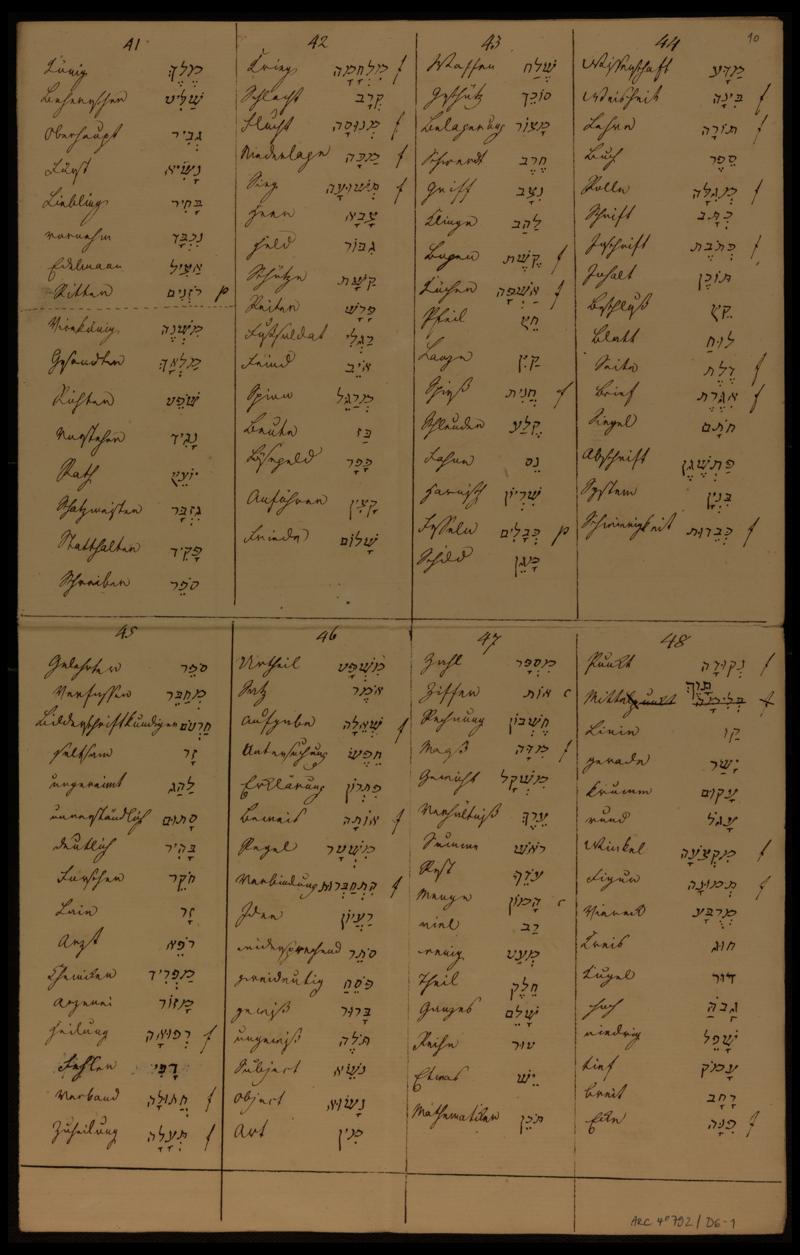 10
41
König מֶלֶךְ
Beherrscher שַׁלִּיט
Oberhaupt גְּבִיר
Fürst נָשִׂיא
Liebling בָּחִיר
vornehm נִכְבָּד
Edelmann אָצִיל
Ritter רֹזְנִים p
Vicekönig מִשְׁנֶה
Gesandter מַלְאָךְ
Richter שֹׁפֵט
Vorsteher נָגִיד
Rath יוֹעֵץ
Schatzmeister גִּזְבָּר
Statthalter פָּקִיד
Schreiber סֹפֵר
42
Krieg מִלְחָמָה f
Schlacht קְרָב
Flucht מְנוּסָה f
Niederlage מַכָּה f
Sieg תְּשׁוּעָה f
Heer צָבָא
Held גִּבּוֹר
Schütze קַשָּׁת
Reiter פָּרָשׁ
Fußsoldat רַגְלִי
Feind אֹיֵב
Spion מְרַגֵּל
Beute בַּז
Lösegeld כֹּפֶר
Anführer קָצִין
Friede שָׁלוֹם
43
Waffen שֶׁלַח
Geschütz סוֹכֵך
Belagerung מָצוֹר
Schwerdt חֶרֶב
Griff נִצָּב
Klinge לַהַב
Bogen קֶשֶׁת f
Köcher אַשְׁפָּה f
Pfeil חֵץ
Spieß חֲנִית f
Schleuder קֶלַע
Fahne נֵס
Harnisch שִׁרְיוֹן
Fesseln כְּבָלִים p
Schild מָגֵן
44
Wissenschaft מַדָּע
Weisheit בִּינָה f
Lehre תּוֹרָה f
Buch סֵפֶר
Rolle מְגִלָּה f
Schrift כְּתָב
Inschrift כְּתֹבֶת f
Inhalt תּוֹכֶן
Beschluß קֵץ
Blatt לוּחַ
Seite דֶּלֶת f
Brief אִגֶּרֶת f
Siegel חֹתָם
Abschrift פַּתְשֶׁגֶן
System בִּנְיָן
Schwierigkeit כְּבֵדוּת f
45
Gelehrter סֹפֵר
Verfasser מְחַבֵּר
Bilderschriftkundiger חַרְטֹם
seltsam זָר
ungereimt לַהַג
unverständlich סָתוּם
deutlich בָּהִיר
Forscher חֹקֵר
Laie זָר
Arzt רֹפֵא
Chemiker מַפְרִיד
Arzenei מָזוֹר
Heilung רְפוּאָה f
Fehler דֳּפִי
Verband חֲתוּלָה f
Zuheilung תְּעָלָה f
46
Urtheil מִשְׁפָּט
Satz אֹמֶר
Aufgabe שְׁאֵלָה f
Untersuchung חֵפֶשׂ
Erklärung פִּתְרוֹן
Beweis אוֹתָה f
Regel מִשְׁטָר
Verbindung הִתְחַבְּרוּת f
Idee רַעְיוֹן
widersprechend סֹתֵר
zweideutig פֹּסֵחַ
gewiß בָּרוּר
ungewiß תֹּלֶה
Subject נֹשֵׂא
Object נָשׂוּא
Art מִין
47
Zahl מִסְפָּר
Ziffer אוֹת c
Rechnung חֶשְׁבּוֹן
Maaß מִדָּה f
Gewicht מִשְׁקָל
Verhältniß עֵרֶךְ
Summe רֹאשׁ
Rest עֹדֵף
Menge הָמוֹן c
viel רַב
wenig מְעַט
Theil חֵלֶק
Ganzes שָׁלֵם
Reihe טוּר
Etwas יֵשׁ
Mathematiker תֹּכֵן
48
Punkt נְקוּדָה f
תָּוֶךְ
Mittelpunkt f
Linie קַו
gerade יָשָׁר
krumm עָקוֹם
rund עָגֹל
Winkel מִקְצֹעָה f
Figur תְּמוּנָה f
Viereck מְרֻבָּע
Kreis חוּג
Kugel דּוּר
hoch גָּבֹהַּ
niedrig שָׁפֵל
tief עָמוֹק
breit רָחָב
Ecke פִּנָּה f
ARC 4° 792 / D6-1